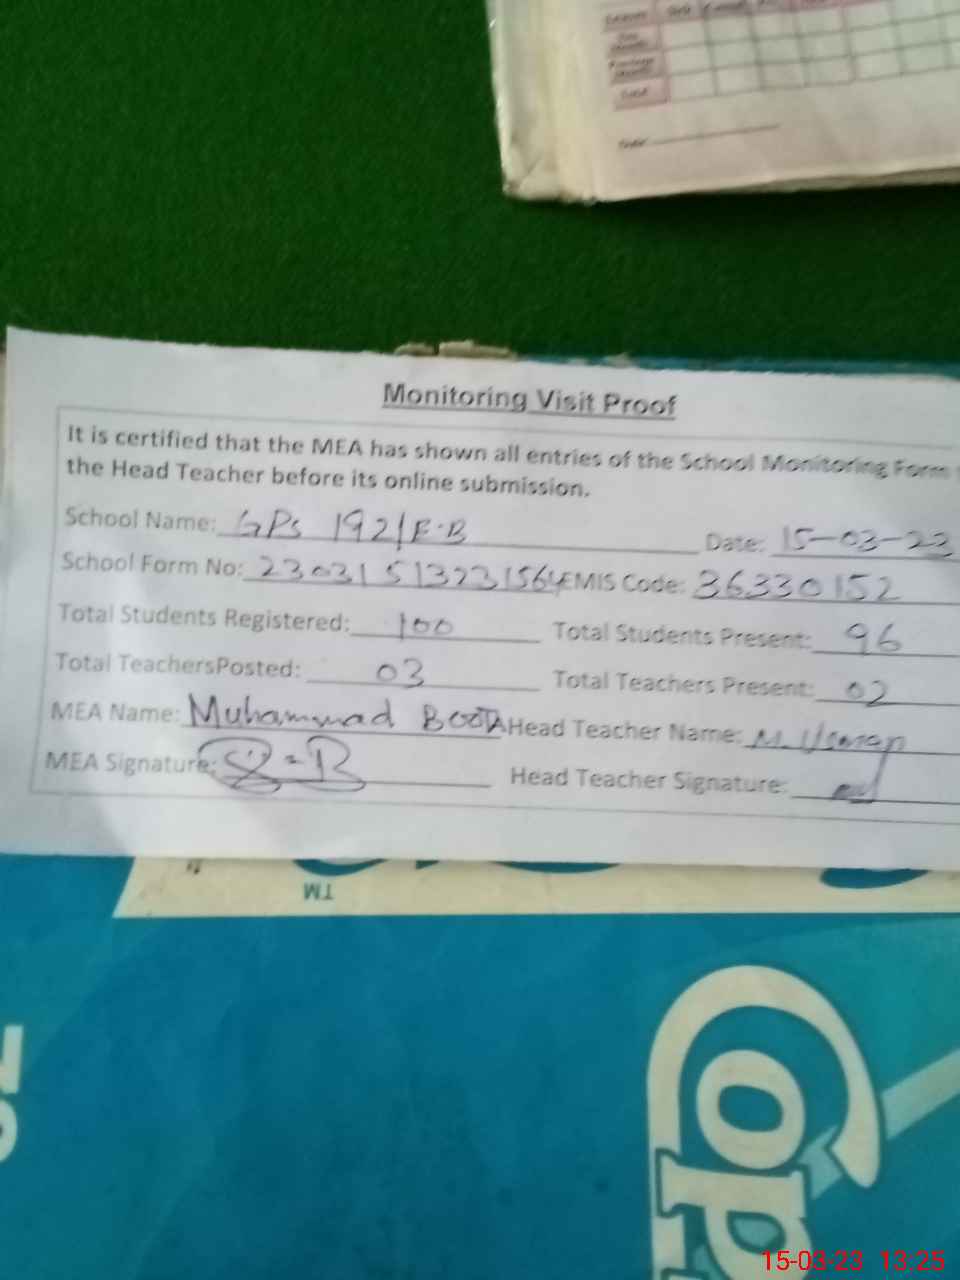 Total
Date:
Monitoring Visit Proof
It is certified that the MEA has shown all entries of the School Monitoring Form
the Head Teacher before its online submission.
School Name: GPS 192/E.B Date: 15-03-23
School Form No: 23031513231564 EMIS Code: 36330152
Total Students Registered: 100 Total Students Present: 96
Total TeachersPosted: 03 Total Teachers Present: 02
MEA Name: Muhammad BOOTA Head Teacher Name: M. Usman
MEA Signature: Head Teacher Signature:
TM
15-03-23 13:25